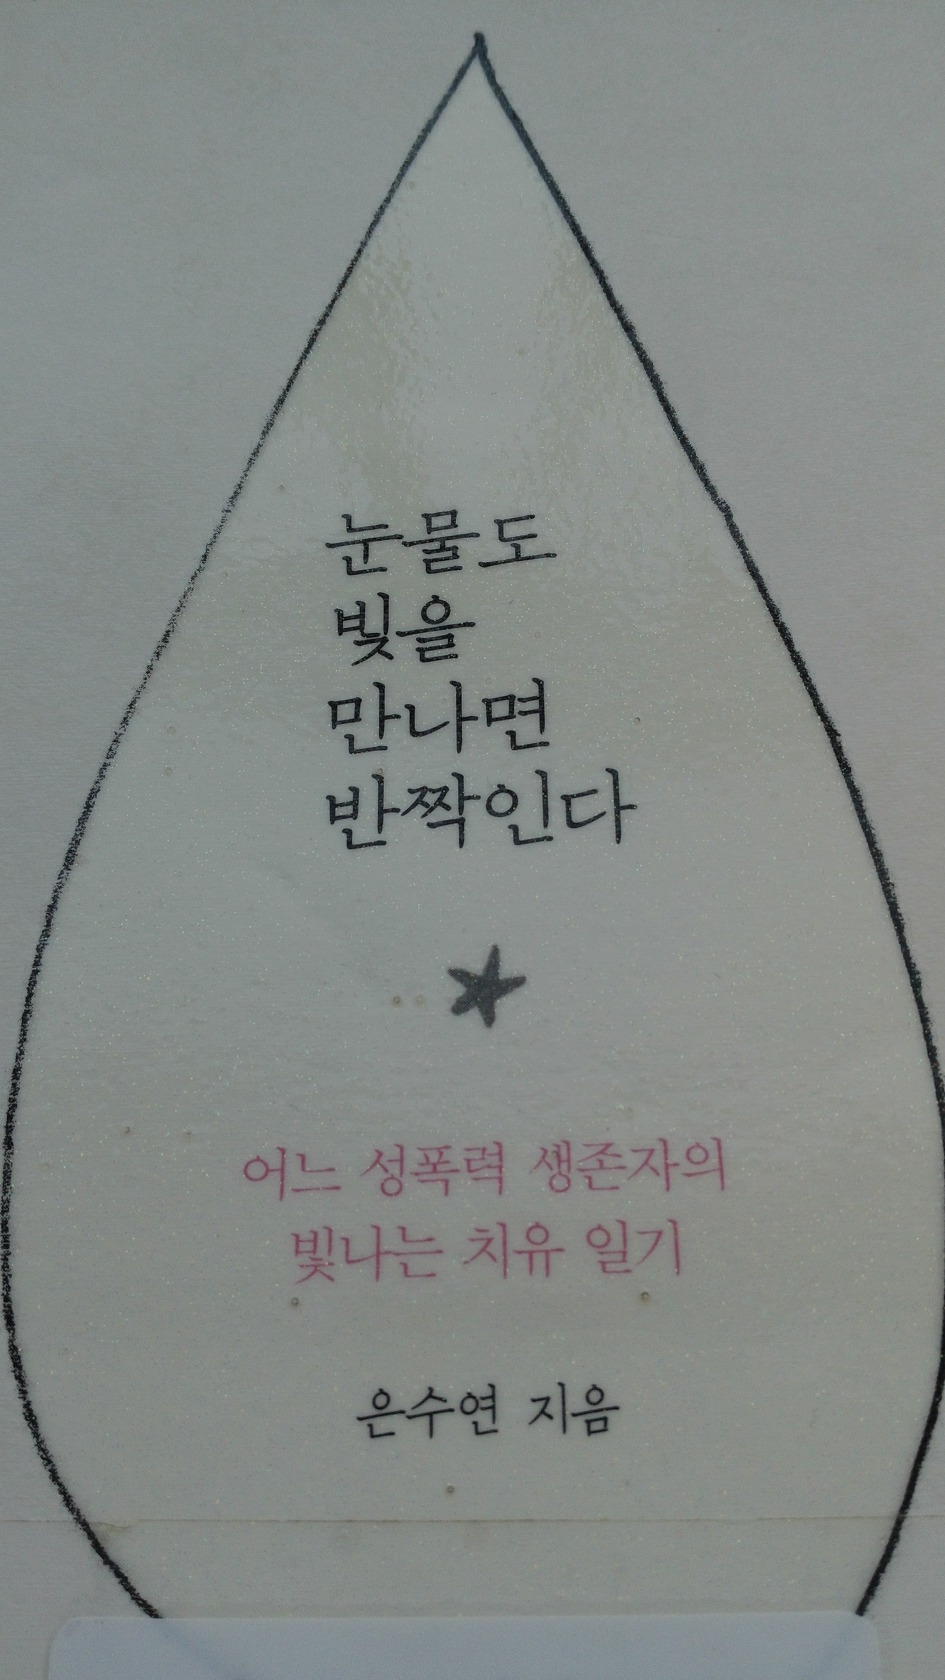 눈물도
빛을
만나면
반짝인다
어느 성폭력 생존자의
빛나는 치유 일기
은수연 지음